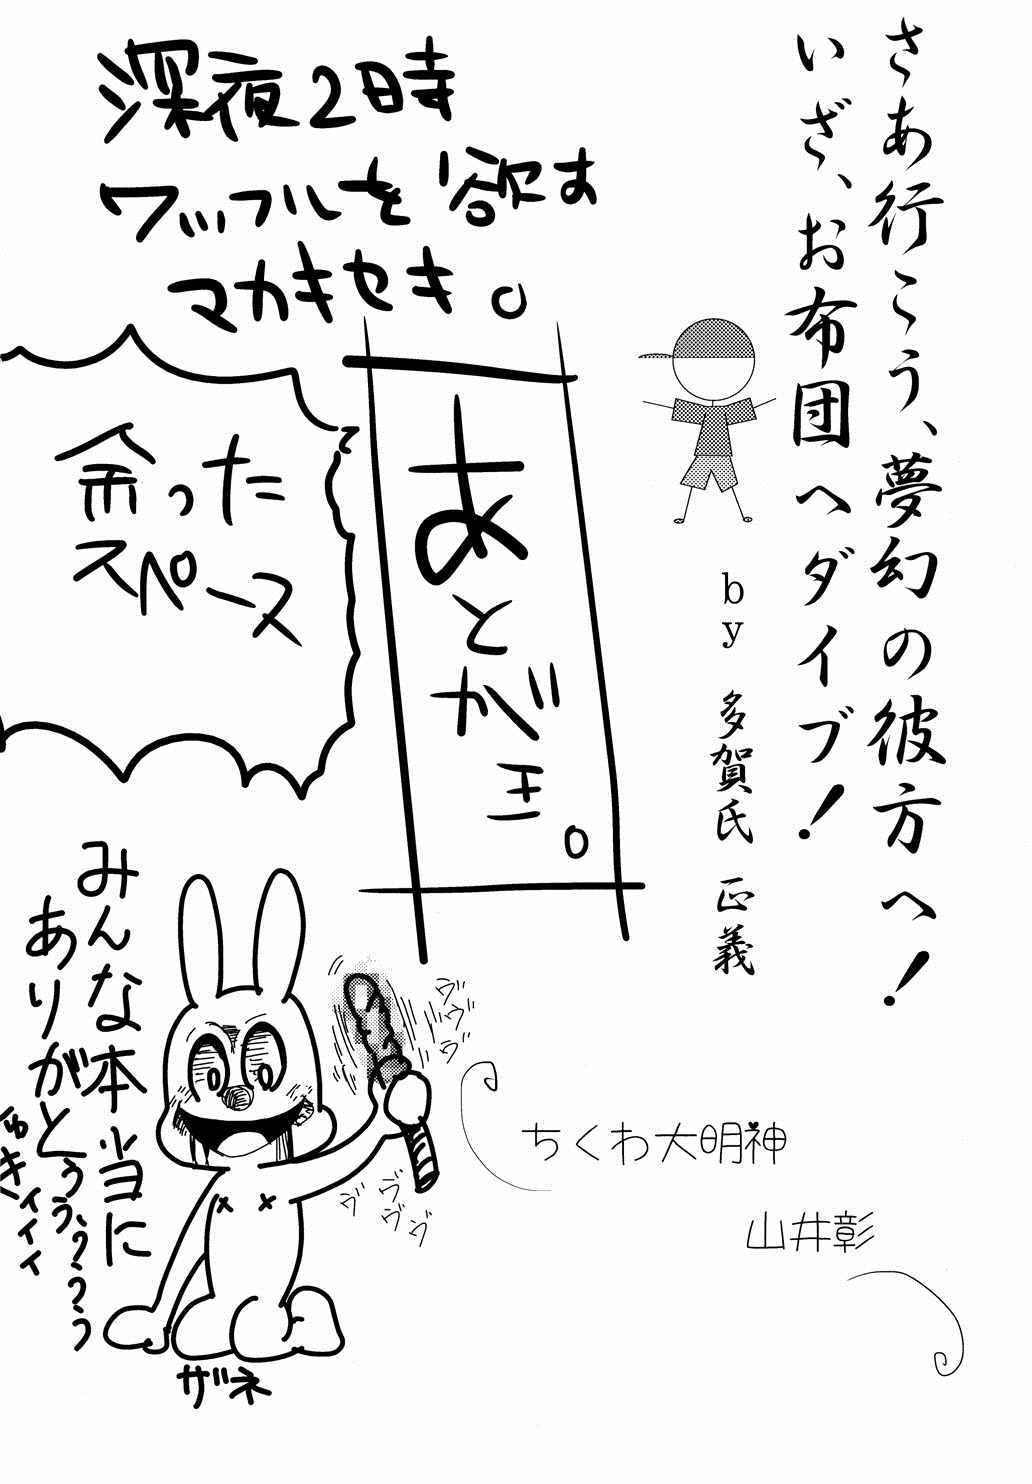 さあ行こう、夢幻の彼方へ！
いざ、お布団へダイブ！
by 多賀氏 正義
深夜2時
ワッフルを欲す
マカキセキ。
あとがき。
余った
スペースて
みんな本当に
ありがとぅぅ、ぅぅぅ
ゆきィィィ
ザネ
ヴヴヴ
ヴヴヴヴ
ちくわ大明神
山井彰